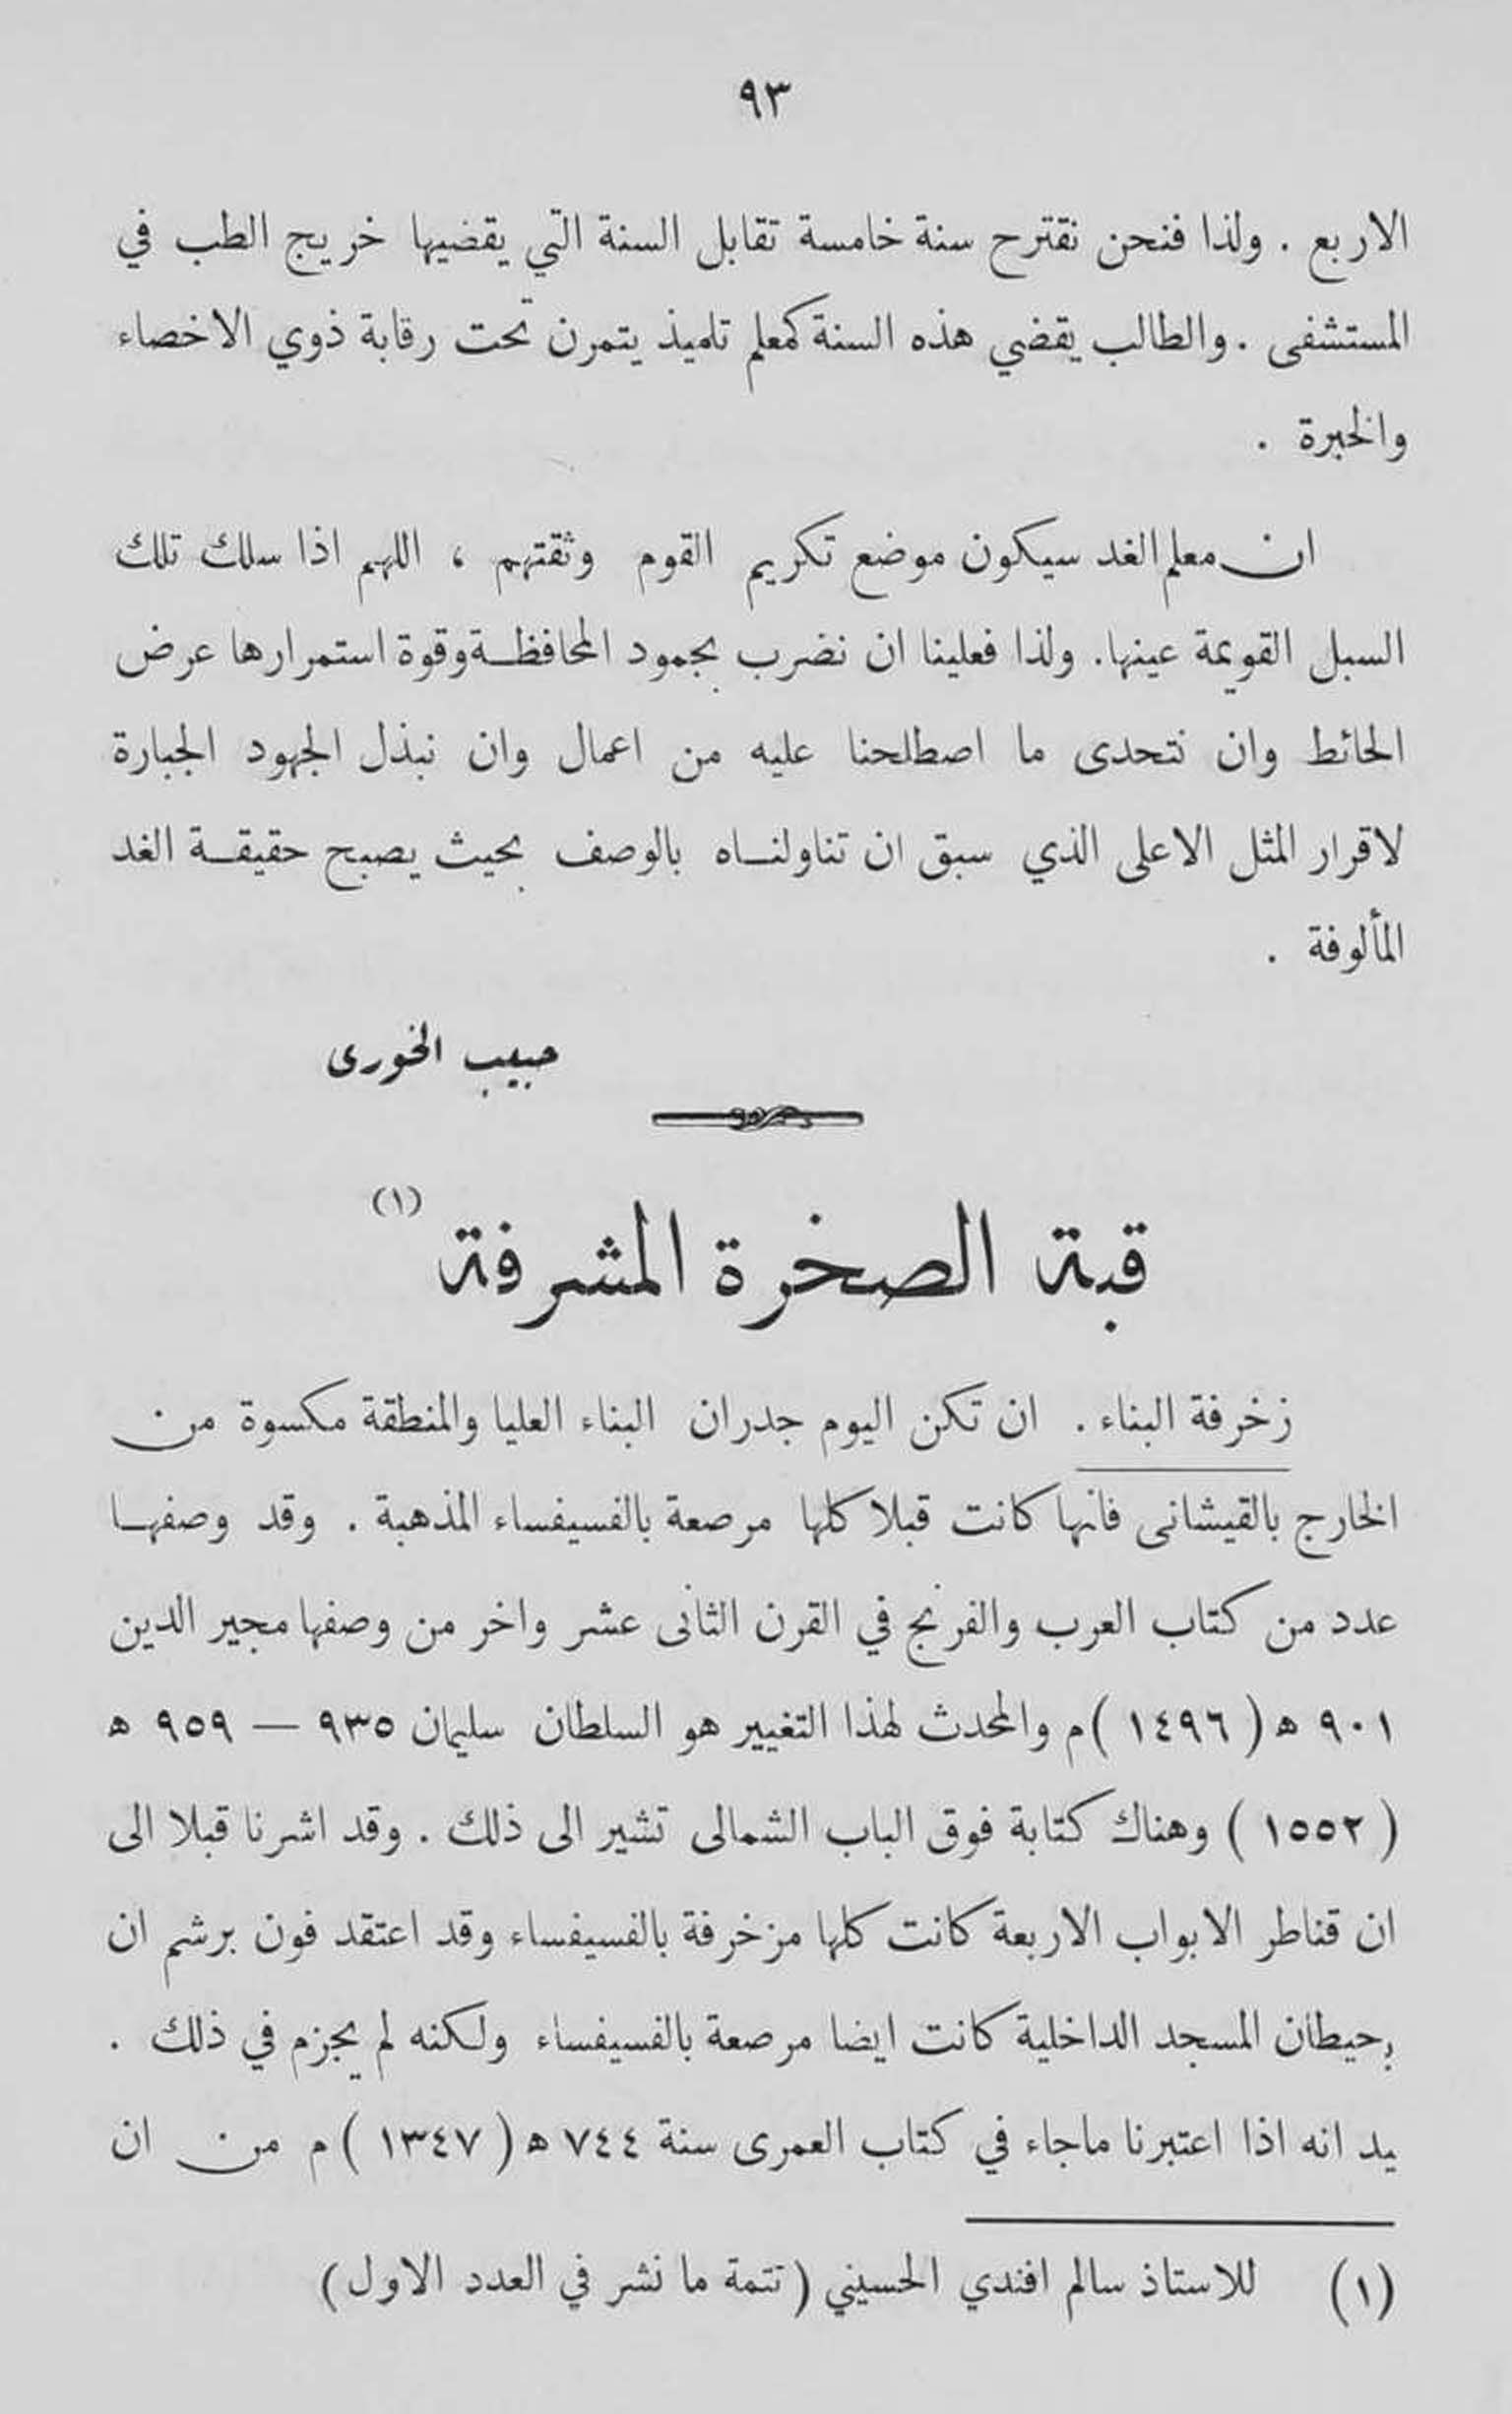 ٩٣
الاربع . ولذا فنحن نقترح سنة خامسة تقابل السنة التي يقضيها خريج الطب في
المستشفى . والطالب يقضي هذه السنة كمعلم تلميذ يتمرن تحت رقابة ذوي الاخصاء
والخبرة .
ان معلم الغد سيكون موضع تكريم القوم وثقتهم ، اللهم اذا سلك تلك
السبل القويمة عينها. ولذا فعلينا ان نضرب بجمود المحافظة وقوة استمرارها عرض
الحائط وان نتحدى ما اصطلحنا عليه من اعمال وان نبذل الجهود الجبارة
لاقرار المثل الاعلى الذي سبق ان تناولناه بالوصف بحيث يصبح حقيقة الغد
المألوفة .
حبيب الخورى
قبة الصخرة المشرفة (١)
زخرفة البناء . ان تكن اليوم جدران البناء العليا والمنطقة مكسوة من
الخارج بالقيشانى فانها كانت قبلا كلها مرصعة بالفسيفساء المذهبة . وقد وصفها
عدد من كتاب العرب والفرنج في القرن الثانى عشر واخر من وصفها مجير الدين
٩٠١ ه ( ١٤٩٦ ) م والمحدث لهذا التغيير هو السلطان سليمان ٩٣٥ — ٩٥٩ ه
( ١٥٥٢ ) وهناك كتابة فوق الباب الشمالى تشير الى ذلك . وقد اشرنا قبلا الى
ان قناطر الابواب الاربعة كانت كلها مزخرفة بالفسيفساء وقد اعتقد فون برشم ان
حيطان المسجد الداخلية كانت ايضا مرصعة بالفسيفساء ولكنه لم يجزم في ذلك .
يد انه اذا اعتبرنا ماجاء في كتاب العمرى سنة ٧٤٤ ه ( ١٣٤٧ ) م من ان
(١) للاستاذ سالم افندي الحسيني ( تتمة ما نشر في العدد الاول )